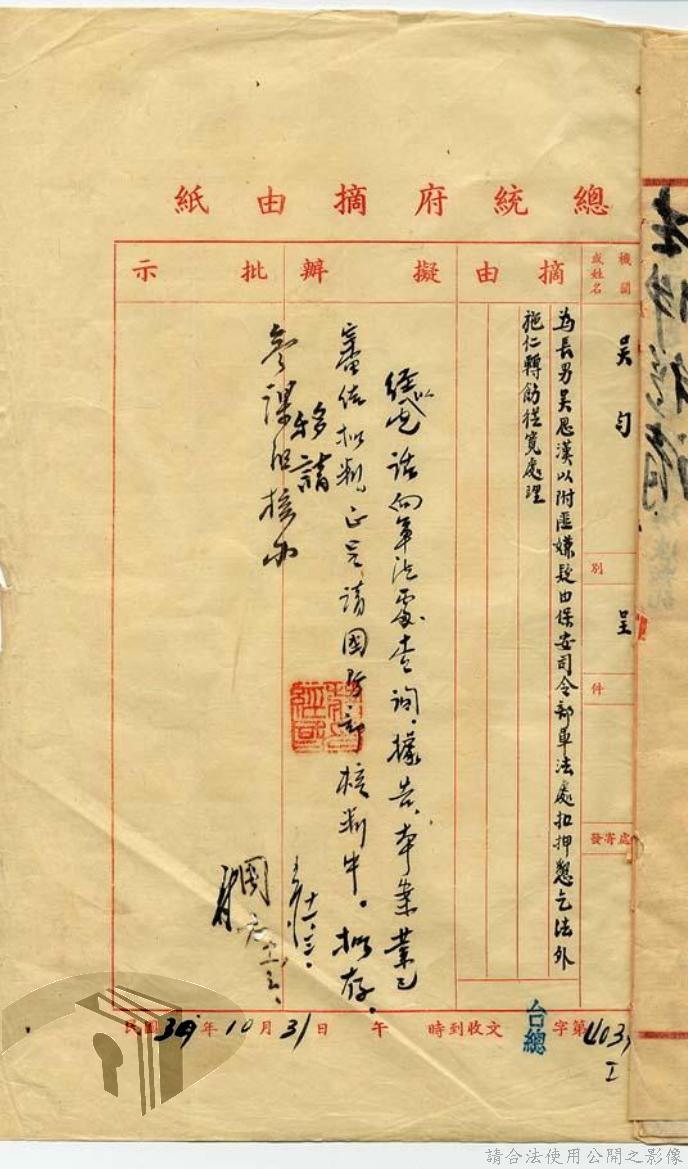 總統府摘由紙
機關或姓名
摘由
擬辦
批示
吳勻
別
呈
件
發寄處
為長男吳思漢以附匪嫌疑由保安司令部軍法處扣押懇乞法外
施仁轉飭從寬處理
經以電話向軍法處查詢，據告，本案業已
審結拟判，正呈請國防部核判中。拟存。
移請
參謀
核
十一、三、
民國39年10月31日 午 時到收文 台總字第403
I
請合法使用公開之影像